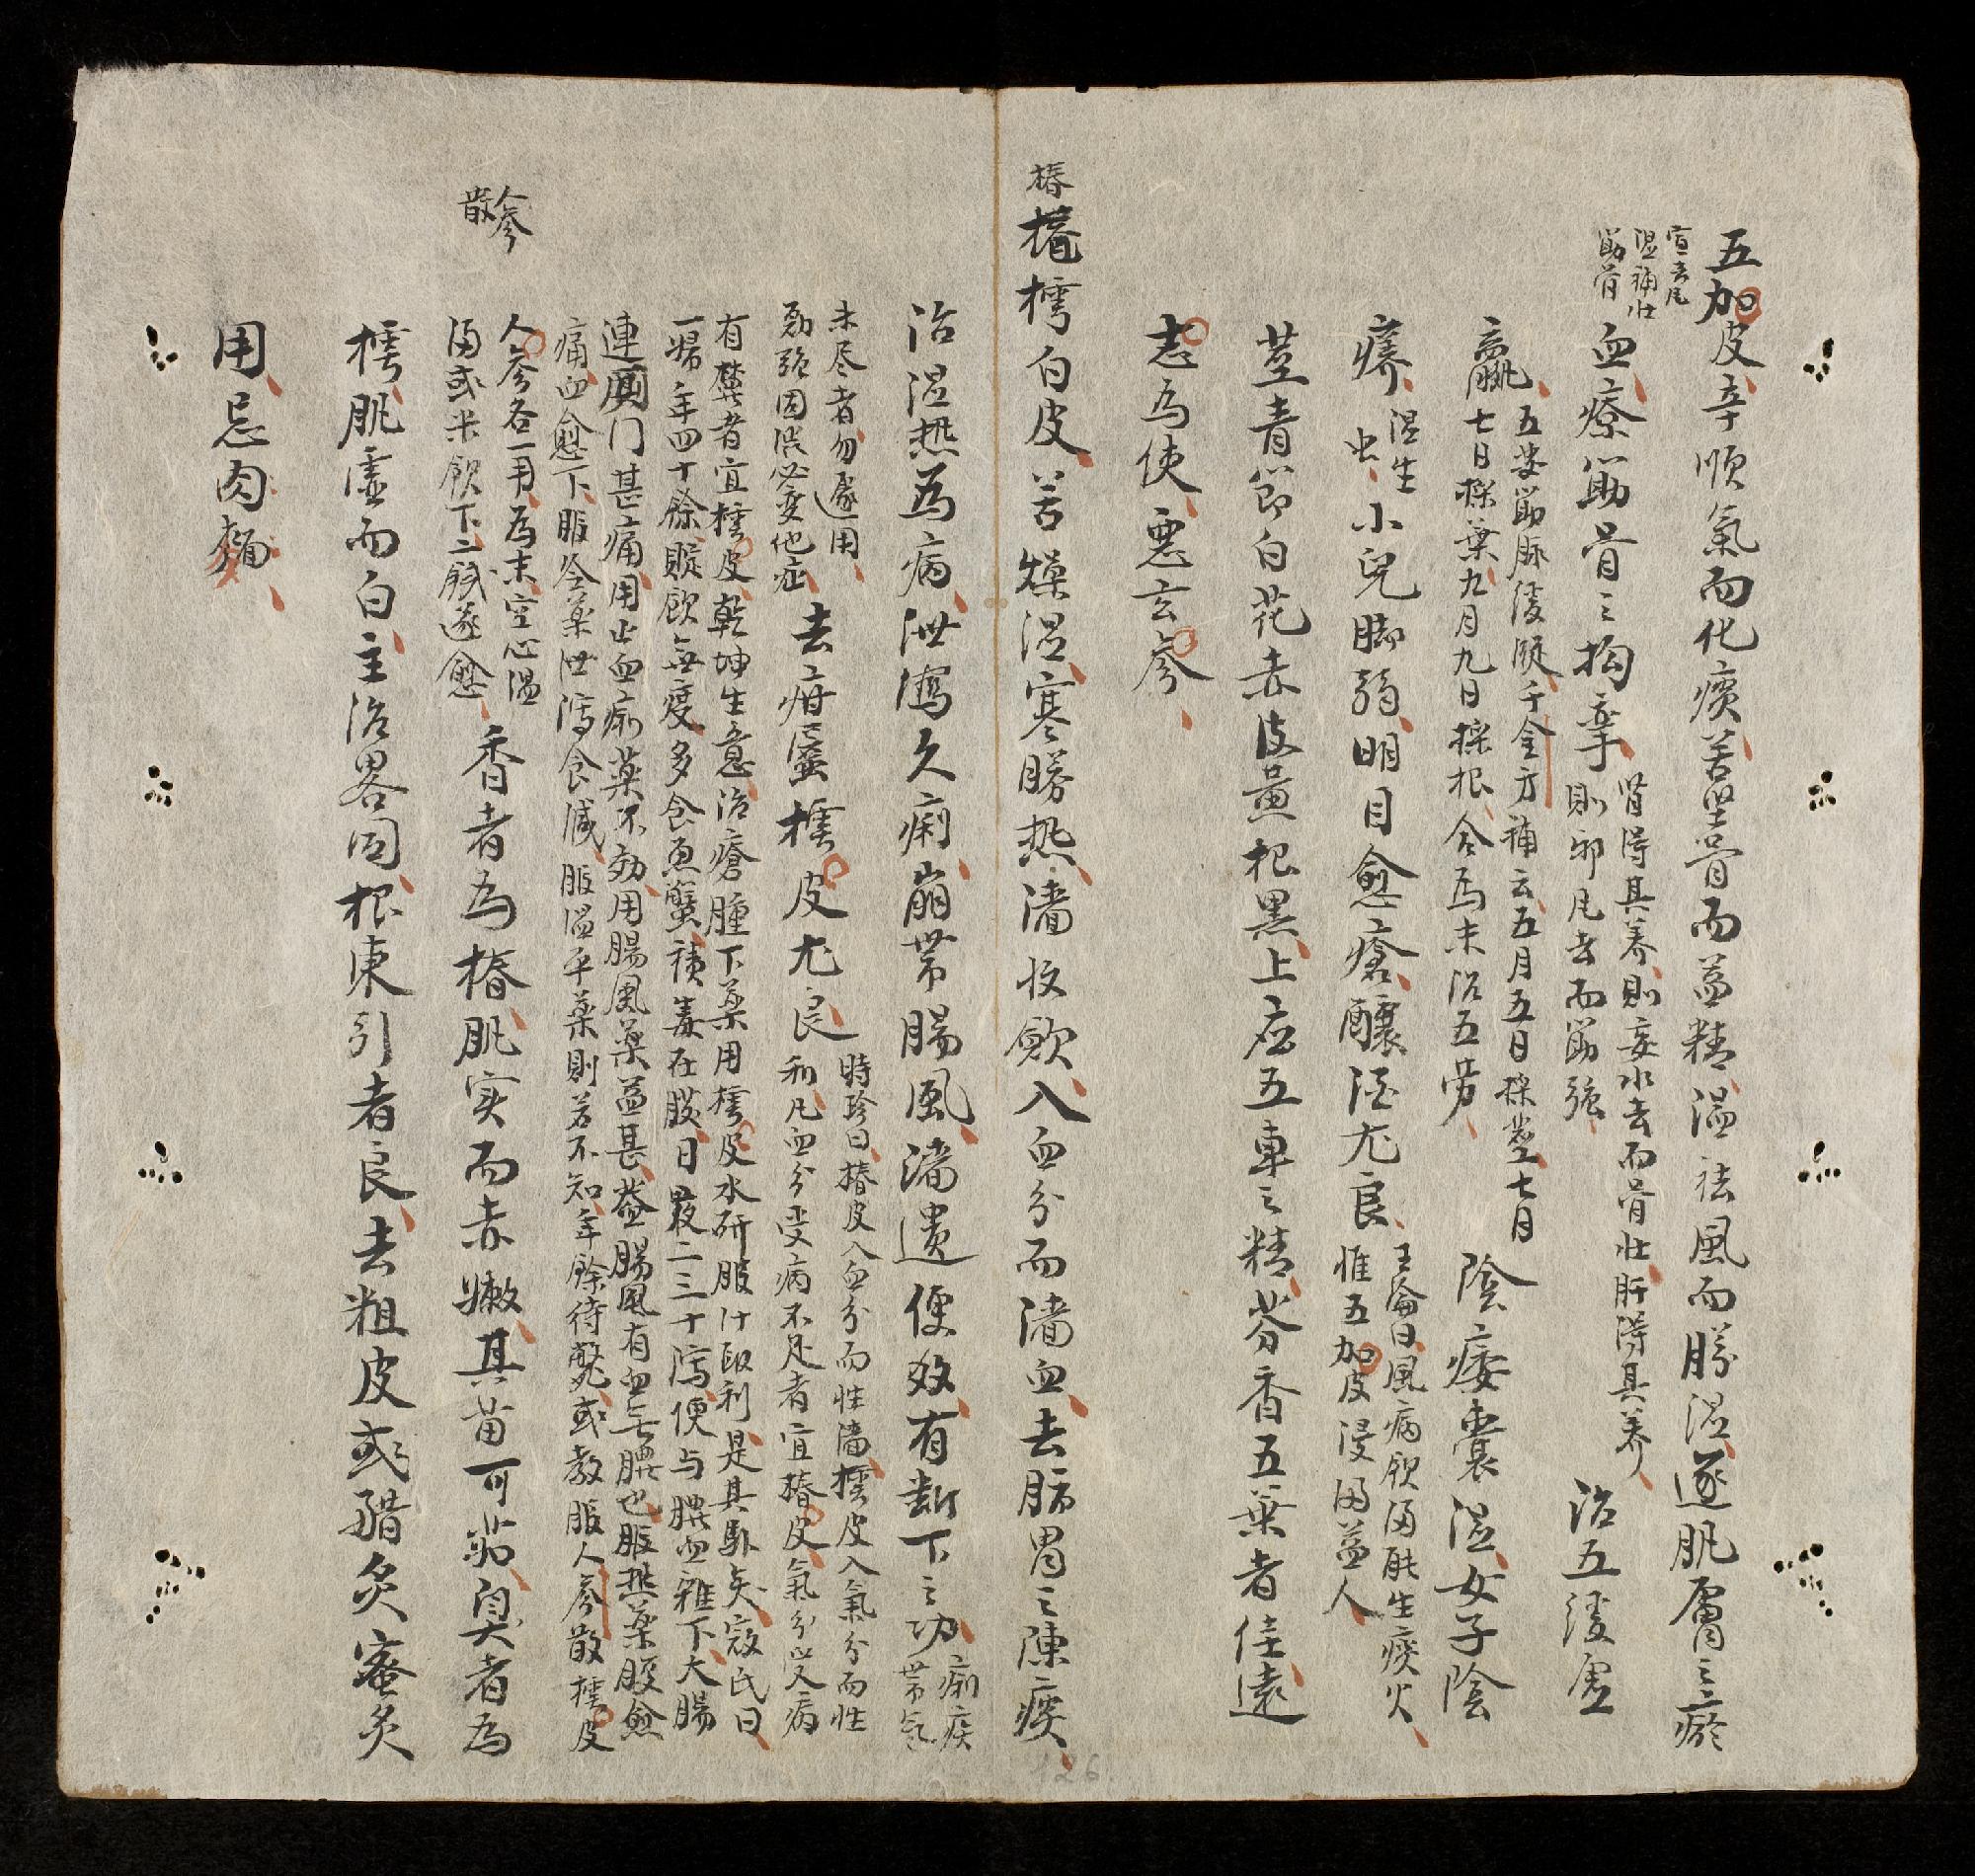 五加皮辛順氣而化痰苦堅骨而益精温祛風而勝湿逐肌膚之瘀
宣去風
湿補壮
筋骨
血療筋骨之拘挛
肾得其养則妄水去而骨壮肝得其养
則邪風去而筋強
治五緩虚
羸
五娄筋脉缓縦千金方補云五月五日採莖七月
七日採葉九月九日採根合為末治五劳
陰痿囊湿女子陰
痒
湿生
虫
小兒脚弱明目愈瘡釀酒尤良
王綸曰風病飲酒能生痰火
惟五加皮浸酒益人
莖青節白花赤皮黄根黒上应五車之精芬香五葉者佳遠
志為使惡玄参
椿
樗白皮苦燥湿寒勝熱濇收歛入血分而濇血去肺胃之陳痰
治湿热為病泄瀉久痢崩带腸風濇遗便效有断下之功
痢疾
带气
未尽者勿遽用
勉強固濇必变他症
去疳䘌樗皮尤良
時珍曰椿皮入血分而性濇樗皮入氣分而性
利凡血分受病不足者宜椿皮氣分受病
有欝者宜樗皮乾坤生意治瘡腫下藥用樗皮水研服汁取利是其馱矣寇氏曰
一婦年四十餘躭飲無度多食魚蟹積毒在臓日夜二三十瀉便与膿血雜下大腸
連肛门甚痛用止血痢藥不効用腸風藥益甚葢腸風有血无膿也服热藥服愈
痛血愈下服冷藥泄瀉食减服温平藥則若不知年餘待斃或教服人参散樗皮
参
散
人参各一兩為末空心温
酒或米飲下二戔遂愈
香者為椿肌实而赤嫩其苗可茹臭者為
樗肌虚而白主治畧同根東引者良去粗皮或醋炙蜜炙
用忌肉麵
126